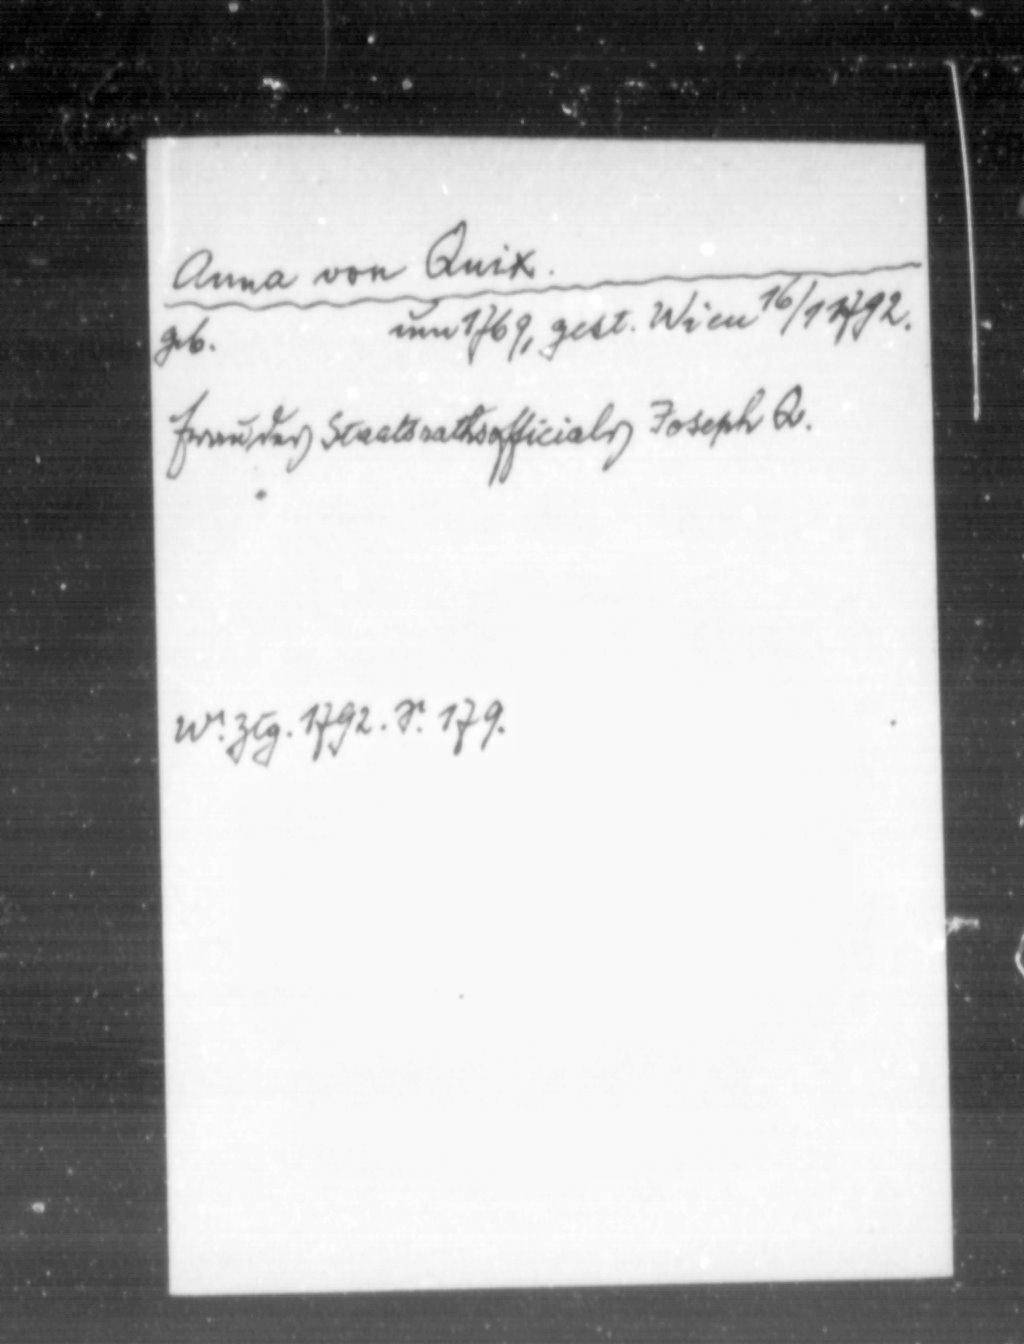 Anna von Quix.
geb. um 1769, gest. Wien 16/1 1792.
Frau des Staatsrathsofficials Joseph Q.
Wr. Ztg. 1792. S. 179.